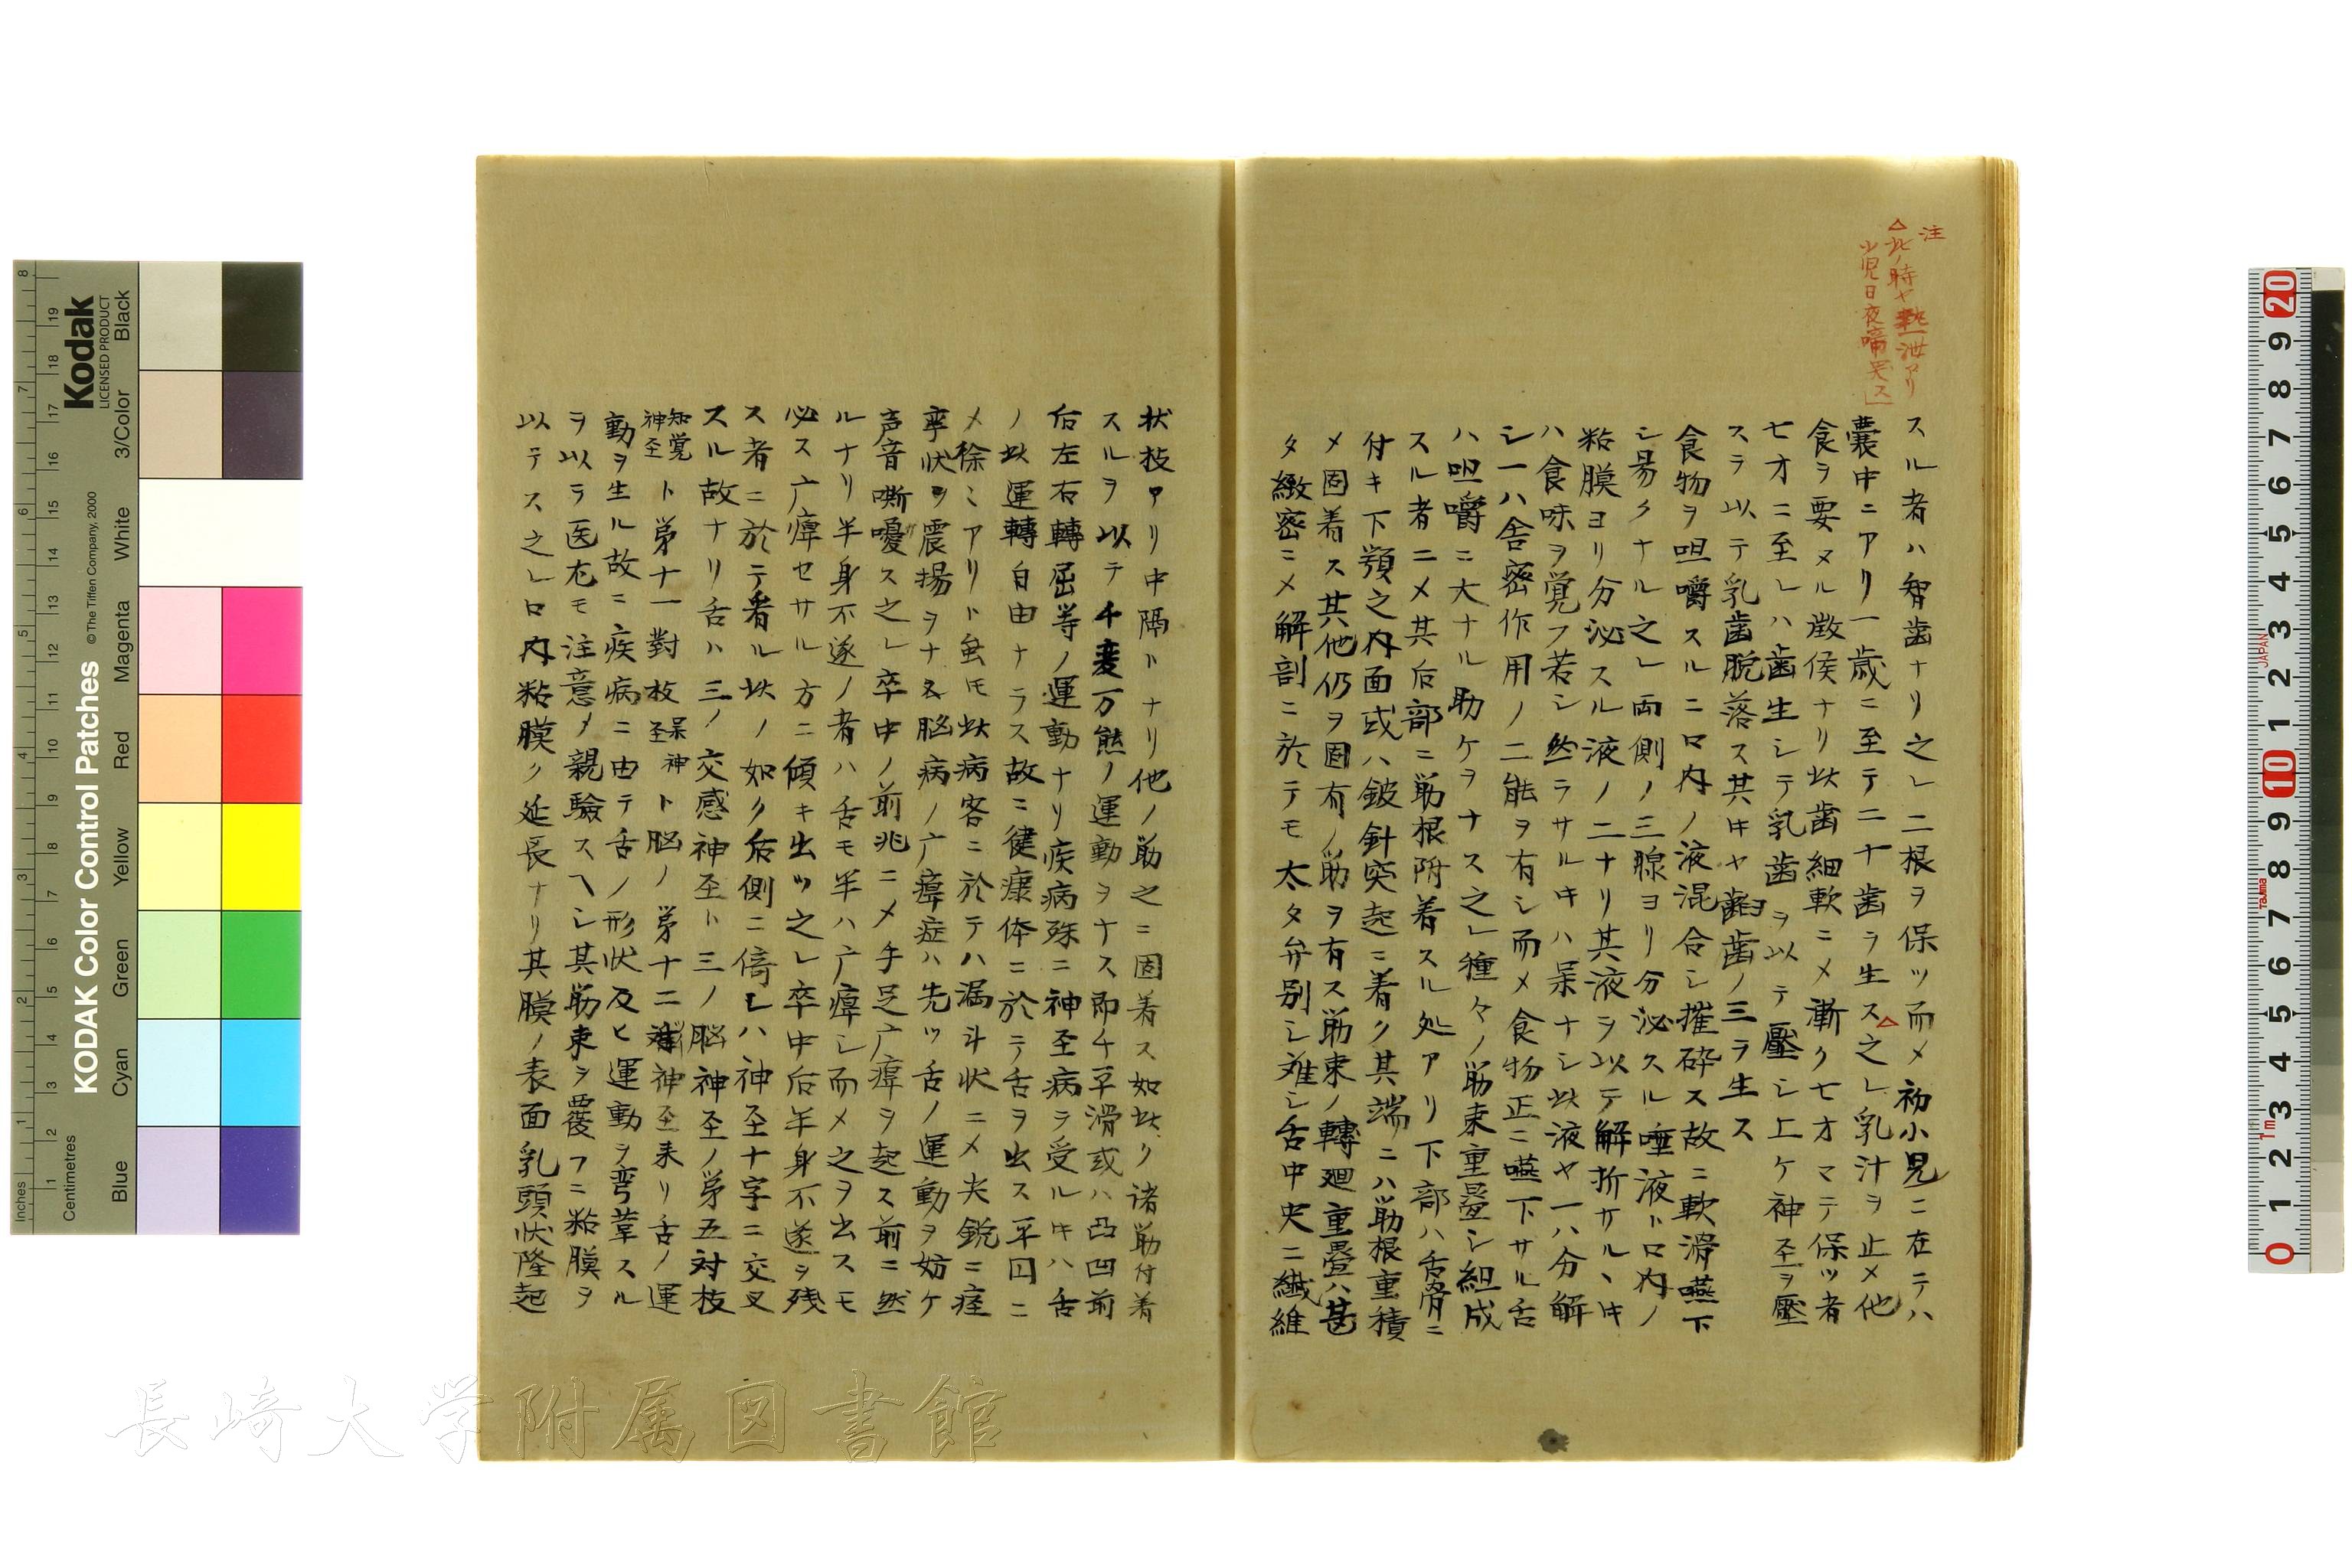 注
△此ノ時ヤ熱泄アリ
小児日夜啼哭ス」
スル者ハ智歯ナリ之レ二根ヲ保ツ而メ初小児ニ在テハ
嚢中ニアリ一歳ニ至テ二十歯ラ生ス△之レ乳汁ヲ止メ他
食ヲ要メル徴侯ナリ此歯細軟ニメ漸ク七才マテ保ツ者
七才ニ至レハ歯生シテ乳歯ヲ以テ壓シ上ケ神圣ヲ壓
スラ以テ乳歯脱落ス其キヤ齠歯ノ三ラ生ス
食物ヲ咀嚼スルニ口内ノ液混合シ摧砕ス故ニ軟滑嚥下
シ易クナル之レ両側ノ三腺ヨリ分泌スル唾液ト口内ノ
粘膜ヨリ分泌スル液ノ二ナリ其液ヲ以テ解折サルヽキ
ハ食味ヲ覚フ若シ然ラサルキハ呆ナシ此液ヤ一ハ分解
シ一ハ舎密作用ノ二能ヲ有シ而メ食物正ニ嚥下サル舌
ハ咀嚼ニ大ナル助ケヲナス之」種々ノ筋束重疊シ組成
スル者ニメ其后部ニ筋根附着スル処アリ下部ハ舌骨ニ
付キ下顎之内面或ハ鈹針突起ニ着ク其端ニハ筋根重積
メ固着ス其他仍ヲ固有ノ筋ヲ有ス筋束ノ轉廻重疊ハ甚
タ緻密ニメ解剖ニ於テモ太タ弁別シ难シ舌中央ニ纎維
状枝アリ中隔トナリ他ノ筋之ニ固着ス如此ク诸筋付着
スルヲ以テ千変万態ノ運動ヲナス即チ平滑或ハ凸凹前
后左右轉屈等ノ運動ナリ疾病殊ニ神圣病ラ受ルキハ舌
ノ此運轉自由ナラス故ニ徤康体ニ於テ舌ヲ出ス平囙ニ
メ徐ミアリト虽モ此病客ニ於テハ漏斗状ニメ尖鋭ニ痙
挛状ヲ震揚ヲナス脳病ノ广痺症ハ先ツ舌ノ運動ヲ妨ケ
声音嘶嗄ス之レ卒中ノ前兆ニメ手足广痺ヲ起ス前ニ然
ルナリ半身不遂ノ者ハ舌モ半ハ广痺シ而メ之ヲ出スモ
必ス广痺セサル方ニ傾キ出ツ之レ卒中后半身不遂ヲ残
ス者ニ於テ看ル此ノ如ク后側ニ倚レハ神圣十字ニ交叉
スル故ナリ舌ハ三ノ交感神圣ト三ノ脳神圣ノ第五対枝
知覚神圣ト第十一對枝呆神圣ト脳ノ第十二対神圣来リ舌ノ運
動ヲ生ル故ニ疾病ニ由テ舌ノ形状及ヒ運動ヲ弯䓔スル
ヲ以ラ医尤モ注意メ親験スヘシ其筋束ヲ覆フニ粘膜ヲ
以テス之レ口内粘膜ク延長ナリ其膜ノ表面乳頭状隆起
長崎大学附属図書館
KODAK Color Control Patches
© The Tiffen Company, 2000
Kodak
LICENSED PRODUCT
Inches
Centimetres
Blue Cyan Green Yellow Red Magenta White 3/Color Black
JAPAN